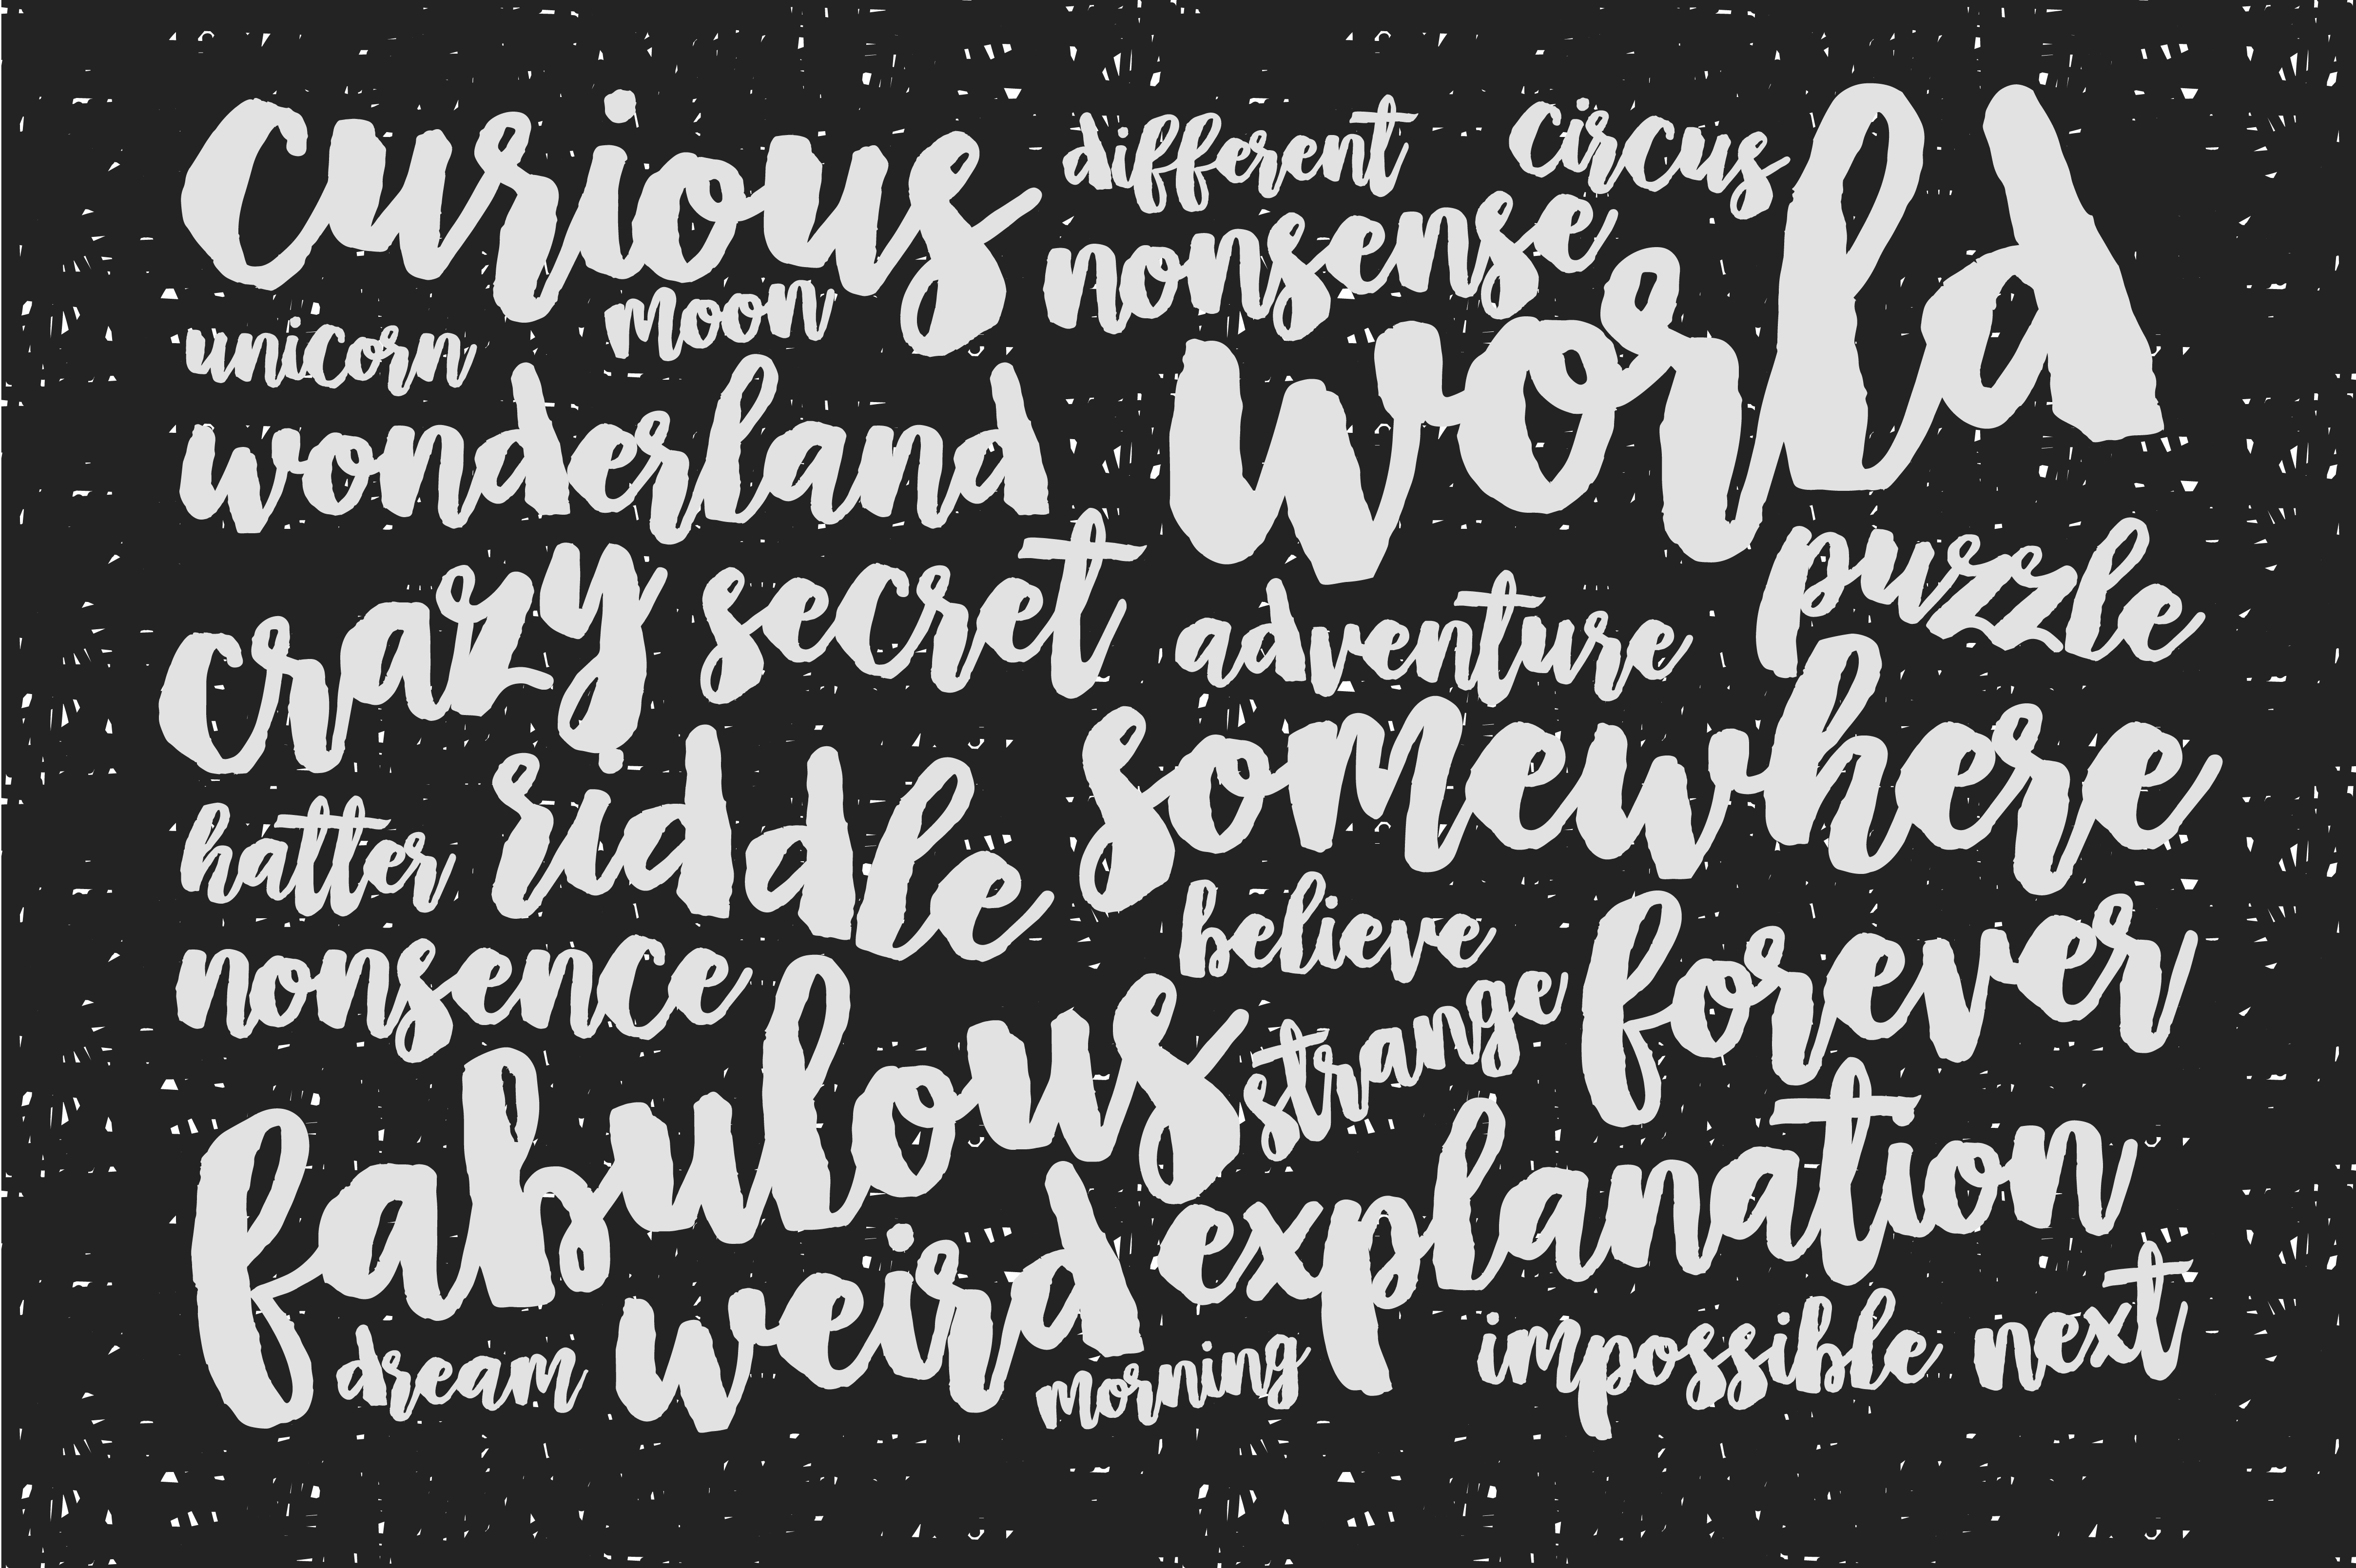 curious different circus
nonsense world
unicorn moon
wonderland
crazy secret adventure puzzle
hatter riddle somewhere
nonsence believe forever
fabulous strange
weird explanation
dream morning impossible next